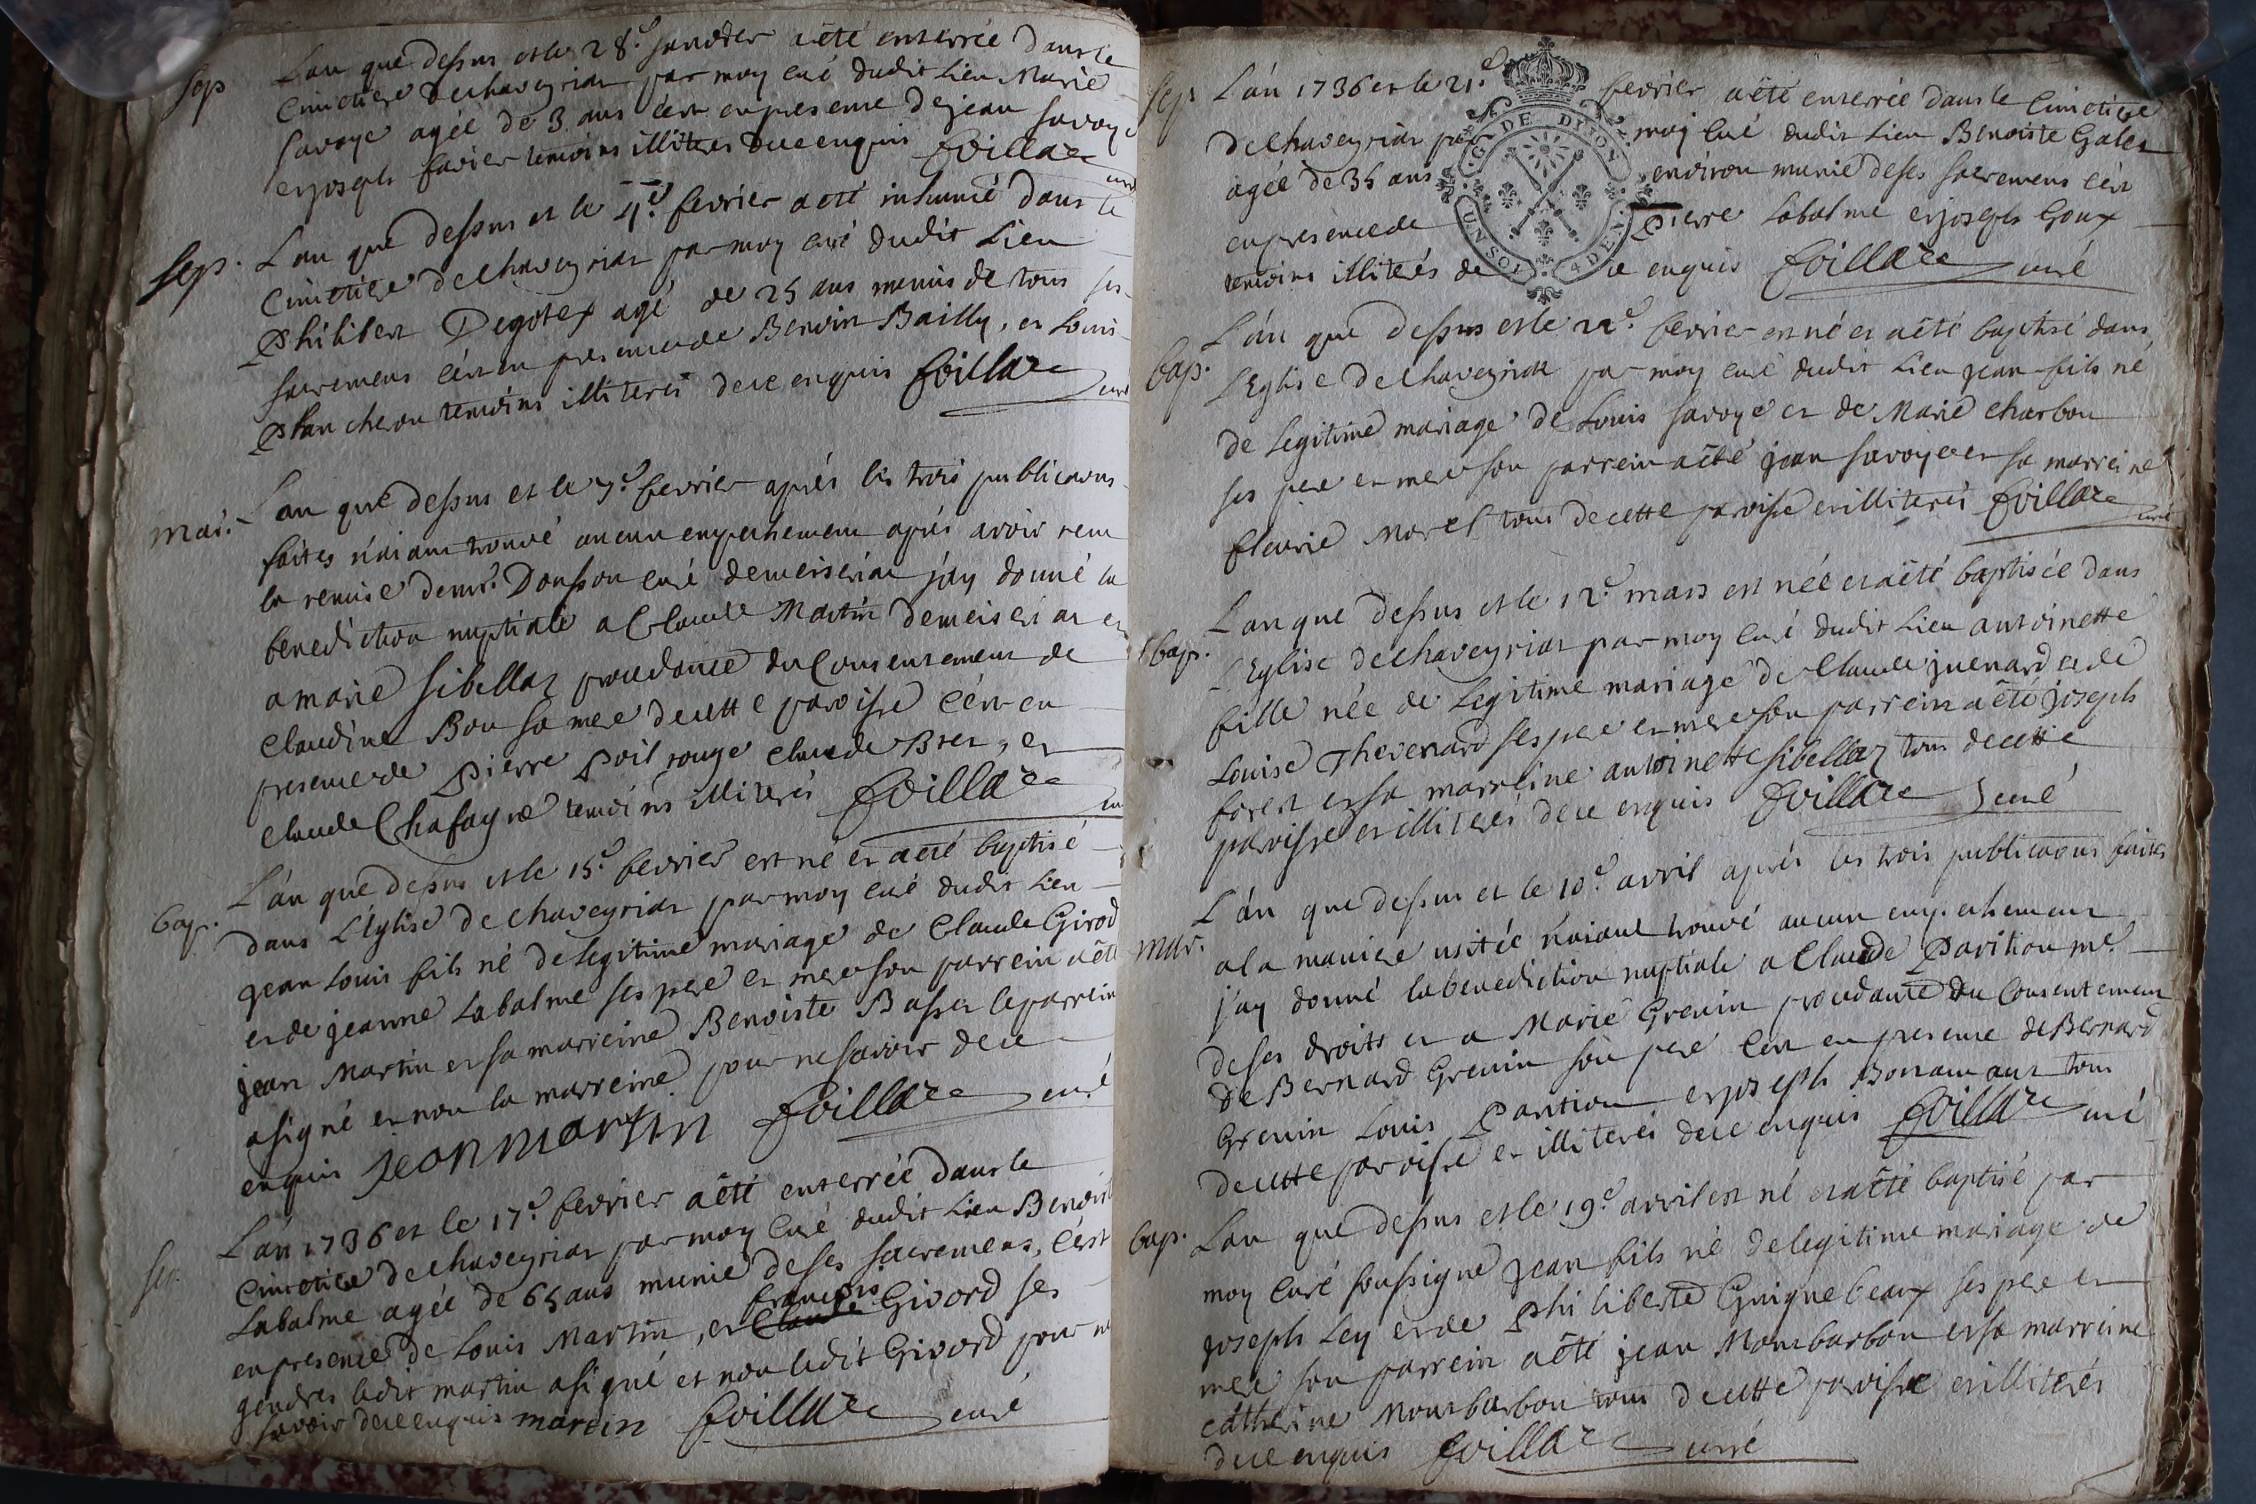 Sep
L'an que dessus et le 28.e janvier a êté enterrée dans le
Cimetiere de chaveyriat par moy curé dudit Lieu Marie
Savoye agée de 3 ans c'est en presence de jean Savoye
et joseph favier temoins illiterés de ce enquis foillare
curé
Sep.
L'an que dessus et le 4.e fevrier a eté inhumé dans le
Cimetiere de chaveyriat par moy curé dudit Lieu
Philibert Degotex agé de 25 ans munis de tous ses
sacremens c'est en presence de Benoit Bailly, et Louis
Plancheron temoins illiterés de ce enquis foillare
curé
mar.
L'an que dessus et le 7.e fevrier après les trois publicaons
faites n'aiant trouvé aucun empechement aprés avoir reçu
la remise de mr. Donsson curé de meiseriat j'ay donné la
benediction nuptiale a Claude Martin de meiseriat et
a marie Sibellaz procedante du Consentement de
Claudine Bon sa mere de cette paroisse c'est en
presence de Pierre Poil rouge Claude Bret, et
Claude Chafagne temoins illiterés foillare
curé
bap.
L'án que dessus et le 15.e fevrier est né et a eté baptisé
dans L'Eglise de chaveyriat par moy curé dudit Lieu
jean Louis fils né de legitime mariage de Claude Girod
et de jeanne Labalme ses pere et mere son parrein a êté
jean Martin et sa marreine Benoiste Basset le parrein
a signé et non la marreine pour ne savoir de ce
enquis jean martin foillare curé
sep.
L'án 1736 et le 17.e fevrier a êté enterrée dans le
Cimetiere de chaveyriat par moy curé dudit Lieu Benoiste
Labalme agée de 65 ans munie de ses sacremens, c'est
françois
en presence de Louis Martin, et Claude Givord ses
gendres ledit martin a signé et non ledit Givord pour ne
savoir de ce enquis martin foillare curé
sep
L'án 1736 et le 21.e fevrier a êté enterrée dans le Cimetiere
de chaveyriat par moy curé dudit Lieu Benoiste Galet
agée de 35 ans environ munie de ses sacremens c'est
en presence de Pierre Labalme et joseph Goux
temoins illiterés de ce enquis foillare curé
G. DE DIJON
UN SOL 4 DEN.
bap.
L'án que dessus et le 22.e fevrier est né et a êté baptisé dans
L'Eglise de chaveyriat par moy curé dudit Lieu jean fils né
de legitime mariage de Louis Savoye et de Marie Charbon
ses pere et mere son parrein a êté jean Savoye et sa marreine
fleurie Morel tous de cette paroisse et illiterés foillare
curé
bap.
L'an que dessus et le 12.e mars est née et a êté baptisée dans
L'Eglise de chaveyriat par moy curé dudit Lieu antoinette
fille née de Legitime mariage de Claude juenard et de
Louise Thevenard ses pere et mere son parrein a êté joseph
forest et sa marreine antoinette Sibellaz tous de cette
paroisse et illiterés de ce enquis foillare curé
mar.
L'án que dessus et le 10.e avril aprés les trois publicaons faites
a la maniere usitée n'aiant trouvé aucun empechement
j'ay donné la benediction nuptiale a Claude Parition me.
de ses droits et a Marie Grevin procedante du Consentement
de Bernard Grevin son pere c'est en presence de Bernard
Grevin Louis Parition et joseph Bonamant tous
de cette paroisse et illiterés de ce enquis foillare curé
bap.
L'an que dessus et le 19.e avril est né et a êté baptisé par
moy curé soussigné jean fils né de legitime mariage de
joseph Ley et de Philiberte Guignebeaux ses pere et
mere son parrein a êté jean Montbarbon et sa marreine
catherine Montbarbon tous de cette paroisse et illiterés
de ce enquis foillare curé